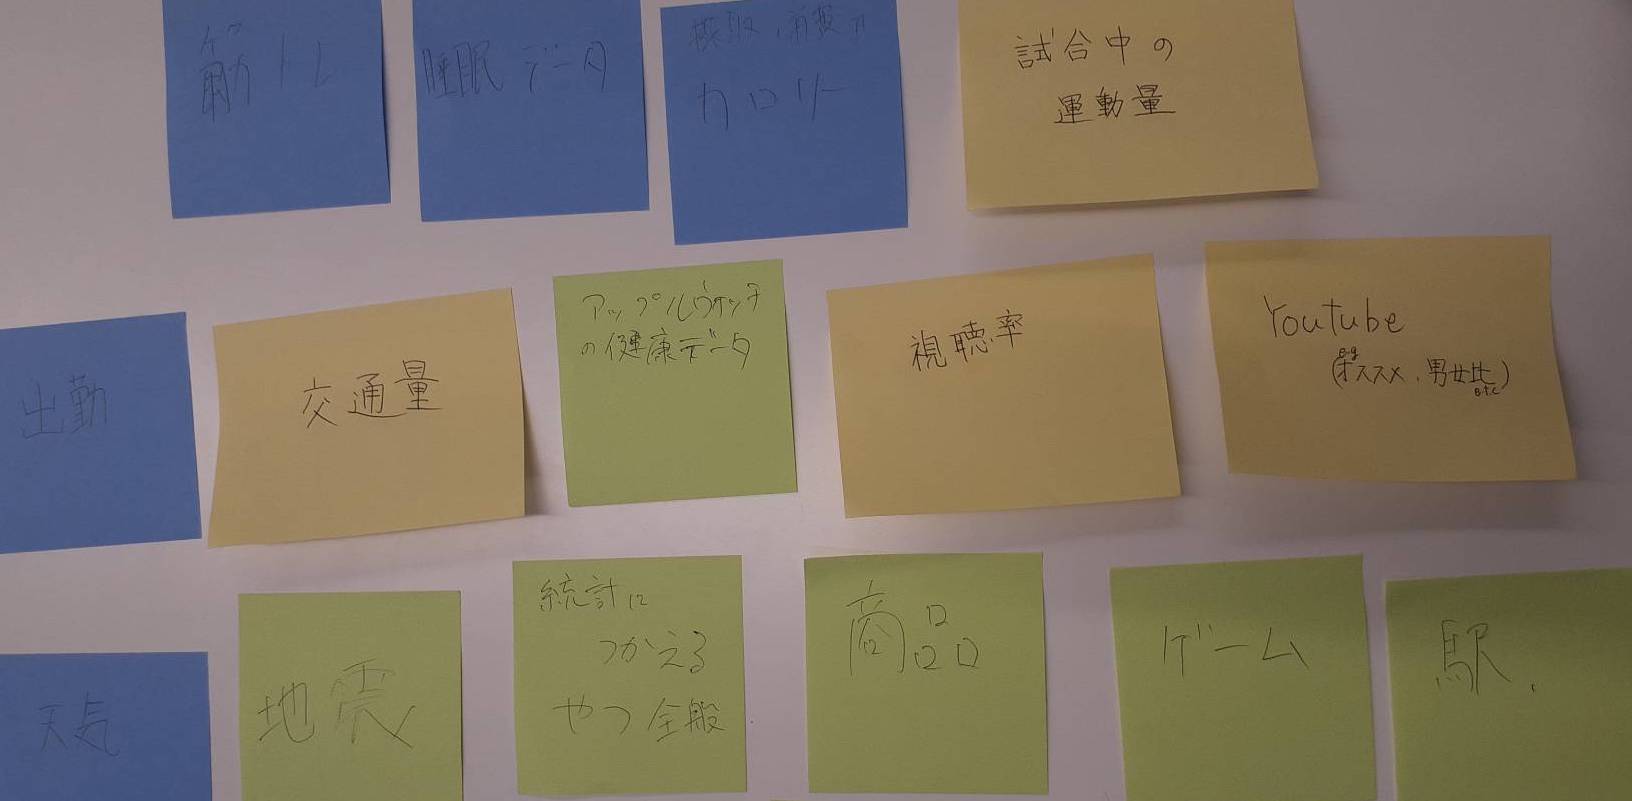 筋トレ
睡眠データ
摂取、消費カ
カロリー
試合中の
運動量
出勤
交通量
アップルウォッチ
の健康データ
視聴率
Youtube
(e.g オススメ、男女比 etc)
天気
地震
統計に
つかえる
やつ全般
商品
ゲーム
駅、